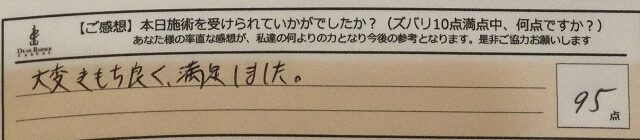 【ご感想】本日施術を受けられていかがでしたか？（ズバリ10点満点中、何点ですか？）
あなた様の率直な感想が、私達の何よりの力となり今後の参考となります。是非ご協力お願いします
DEAR BARBER
CASUAL
大変きもち良く、満足しました。
95点